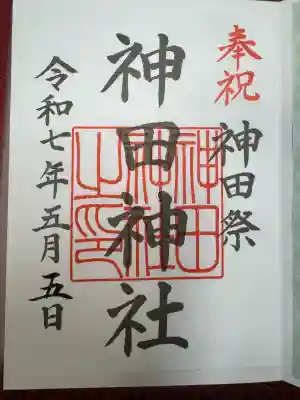 奉祝
神田祭
神田神社
神田神社之印
令和七年五月五日